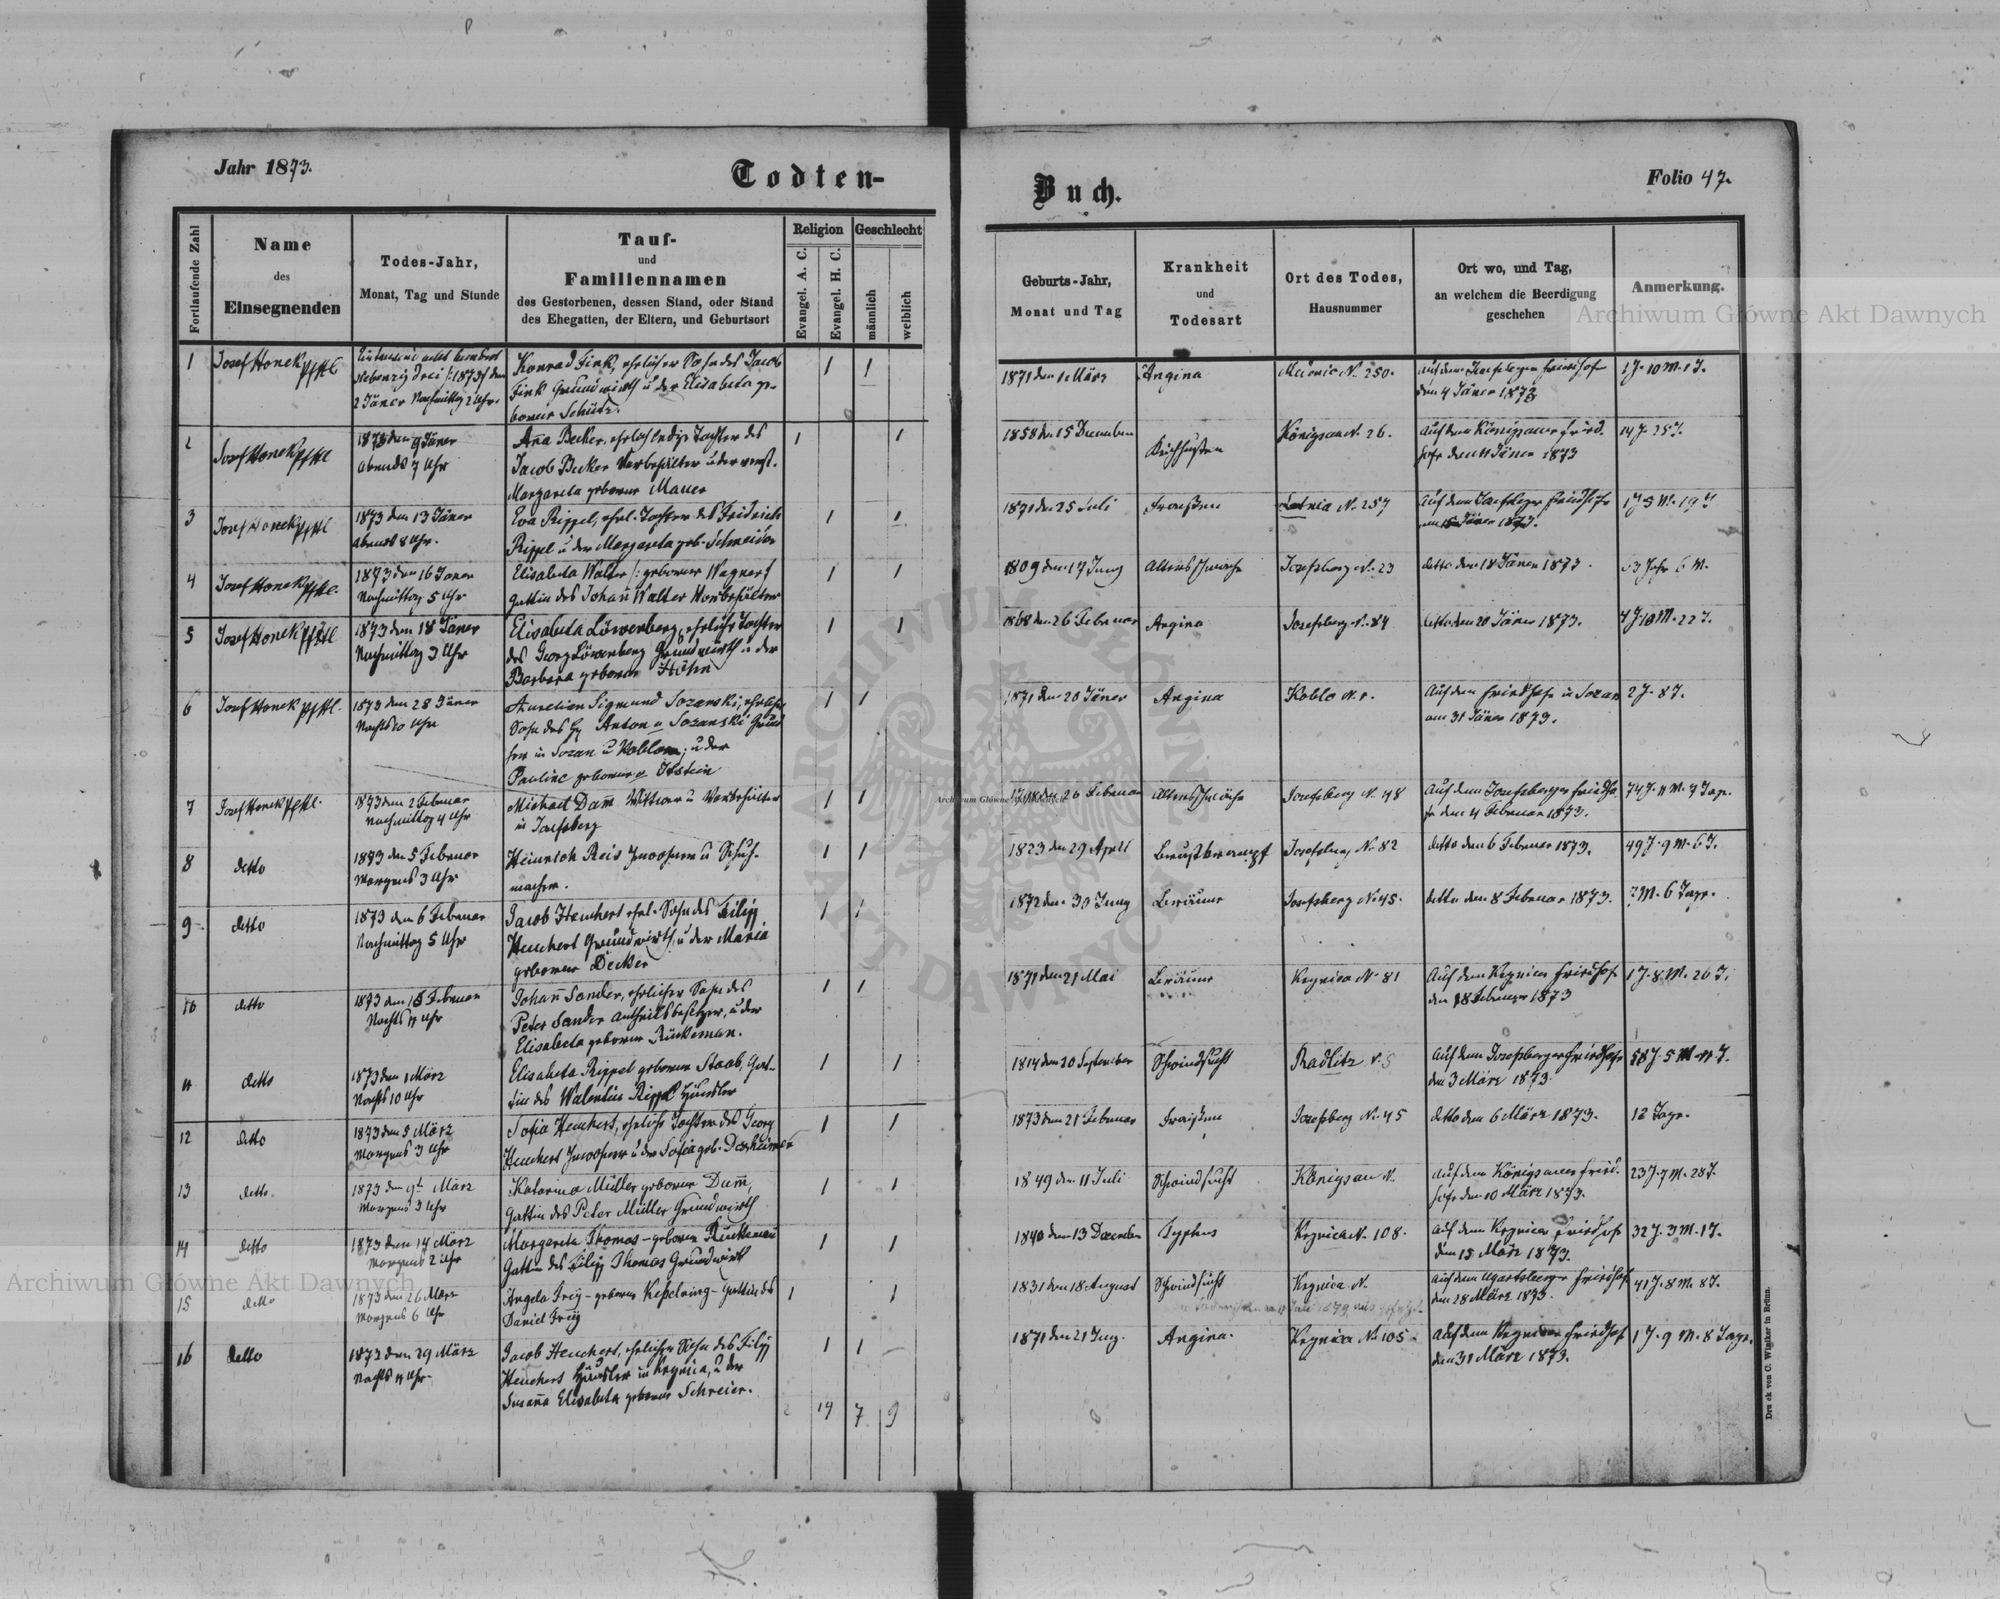 Jahr 1873.
Todten-
Buch.
Folio 47.
Fortlaufende Zahl
Name
des
Einsegnenden
Todes-Jahr,
Monat, Tag und Stunde
Tauf-
und
Familiennamen
des Gestorbenen, dessen Stand, oder Stand
des Ehegatten, der Eltern, und Geburtsort
Religion
Evangel. A. C.
Evangel. H. C.
Geschlecht
männlich
weiblich
Geburts-Jahr,
Monat und Tag
Krankheit
und
Todesart
Ort des Todes,
Hausnummer
Ort wo, und Tag,
an welchem die Beerdigung
geschehen
Anmerkung.
1
Josef Honek
Eintausend acht hundert
siebenzig drei /:1873/ den
2 Jäner Nachmittag 2 Uhr.
Konrad Fink, ehelicher Sohn des Jacob
Fink Grundwirth u. der Elisabeta ge-
borene Schütz.
1 1
1871 den 1 März
Angina
No. 250.
Auf dem Josefsberger Friedhofe
den 4 Jäner 1873
1 J. 10 M. 1 T.
2
Josef Honek
1873 den 9 Jäner
Abends 7 Uhr
Anna Becker, ehelich ledige Tochter des
Jacob Becker Vorbehälter u der verst.
Margareta geborene Mauer
1 1
1858 den 15 December
Keichhusten
Königsau N. 26.
Auf dem Königsauer Fried-
hofe den 11 Jäner 1873
14 J. 25 T.
3
Josef Honek
1873 den 13 Jäner
Abends 8 Uhr.
Eva Rippel, ehel. Tochter des Fridrich
Rippel u der Margareta geb. Schneider
1 1
1871 den 25 Juli
Fraißen
Letnia No. 257
Auf dem Josefsberger Friedhofe
Jäner 1873.
1 J 5 M. 19 T
4
Josef Honek
1873 den 16 Jäner
Nachmittag 5 Uhr
Elisabeta Walter /: geborene Wagner/
Gattin des Johann Walter Vorbehälter
1 1
1809 den 17 Juny
Altersschwäche
Josefsberg No. 23
detto den 18 Jäner 1873.
63 Jahr 6 M.
5
Josef Honek
1873 den 18 Jäner
Nachmittag 3 Uhr
Elisabeta Löwenberg, eheliche Tochter
des Georg Löwenberg Grundwirth u der
Barbara geborene Höhn
1 1
1868 den 26 Februar
Angina
Josefsberg No. 84
detto den 20 Jäner 1873.
4 J 10 M. 22 T.
6
Josef Honek
1873 den 28 Jäner
Nachts 10 Uhr
Aurelian Sigmund Sozanski, ehelicher
Sohn des Anton v Sozanski
in Sozan u Koblo, u der
Pauline geborene
1 1
1871 den 20 Jäner
Angina
Koblo N. 1.
Auf dem Friedhofe in Sozan
am 31 Jäner 1873.
2 J. 8 T.
7
Josef Honek
1873 den 2 Februar
Nachmittag 4 Uhr
Michael Damm Wittwer u Vorbehälter
in Josefsberg
1 1
den 26 Februar
Altersschwäche
Josefsberg No. 48
Auf dem Josefsberger Friedho-
fe den 4 Februar 1873.
74 J. 11 M. 7 Tage.
8
detto
1873 den 5 Februar
Morgens 3 Uhr
Heinrich Reis Inwohner u Schuh-
macher.
1 1
1823 den 29 April
Brustkrampf
Josefsberg No. 82
detto den 6 Februar 1873.
49 J. 9 M. 6 T.
9
detto
1873 den 6 Februar
Nachmittag 5 Uhr
Jacob Heuchert ehel. Sohn des Filipp
Heuchert Grundwirth, u der Maria
geborene Decker
1 1
1872 den 30 Juny
Bräune
Josefsberg No 45.
detto den 8 Februar 1873.
7 M. 6 Tage.
10
detto
1873 den 16 Februar
Nachts 11 Uhr
Johann Sander, ehelicher Sohn des
Peter Sander Antheilsbesitzer, u der
Elisabeta geborene Rückeman.
1 1
1871 den 21 Mai
Bräune
Krynica No 81
Auf dem Krynicer Friedhofe
den 18 Februar 1873
1 J. 8 M. 26 T.
11
detto
1873 den 1 März
Nachts 10 Uhr
Elisabeta Rippel geborene Staab, Gat-
tin des Valentin Rippel Häusler
1 1
1814 den 20 September
Schwindsucht
Radlitz N. 5
Auf dem Josefsberger Friedhofe
den 3 März 1873.
58 J. 5 M. 11 T.
12
detto
1873 den 5 März
Morgens 3 Uhr
Sofia Heuchert, eheliche Tochter des Georg
Heuchert Inwohner u der Sofia geb. Dexheimer
1 1
1873 den 21 Februar
Fraißen
Josefsberg No. 45
detto den 6 März 1873.
12 Tage.
13
detto.
1873 den 9t März
Morgens 3 Uhr
Katarina Müller geborene Damm,
Gattin des Peter Müller Grundwirth
1 1
1849 den 11 Juli
Schwindsucht
Königsau N.
Auf dem Königsauer Fried-
hofe den 10 März 1873.
23 J. 7 M. 28 T.
14
detto
1873 den 14 März
Morgens 2 Uhr
Margareta Thomas – geborene Rückeman
Gattin des Filipp Thomas Grundwirth
1 1
1840 den 13 December
Typhus
Krynica N. 108.
Auf dem Krynicer Friedhofe
den 15 März 1873.
32 J. 3 M. 1 T.
15
detto
1873 den 26 März
Morgens 6 Uhr
Angela Frey – geborene Keßelring – Gattin des
Daniel Frey
1 1
1831 den 18 August
Schwindsucht
Krynica N.
Auf dem Ugartsberger Friedhofe
den 28 März 1873.
41 J. 8 M. 8 T.
16
detto
1873 den 29 März
Nachts 11 Uhr.
Jacob Heuchert, ehelicher Sohn des Filipp
Heuchert Häusler in Krynica, u der
Susanna Elisabeta geborene Schreier.
1 1
1871 den 21 Juny.
Angina.
Krynica No 105
Auf dem Krynicer Friedhofe
den 31 März 1873.
1 J. 9 M. 8 Tage.
2 14 7 9
Druck von C. Winiker in Brünn.
Archiwum Główne Akt Dawnych
Archiwum Główne Akt Dawnych
Archiwum Główne Akt Dawnych
ARCHIWUM GŁÓWNE AKT DAWNYCH